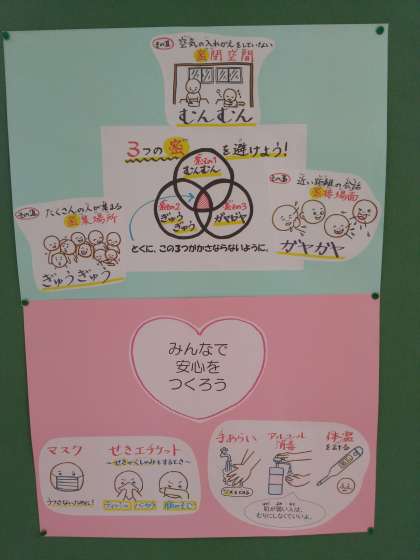 その1 空気の入れかえをしていない
密閉空間
むんむん
3つの密を避けよう!
密その1
むんむん
密その2
ぎゅう
ぎゅう
密その3
ガヤガヤ
とくに、この3つがかさならないように。
たくさんの人が集まる
密集場所
ぎゅうぎゅう
近い距離の会話
密接場面
ガヤガヤ
みんなで
安心を
つくろう
マスク
うつさないために!
せきエチケット
〜せきやくしゃみをするとき〜
手あらい
アルコール
消毒
体温
をはかる
肌が弱い人は、
むりにしなくていいよ。